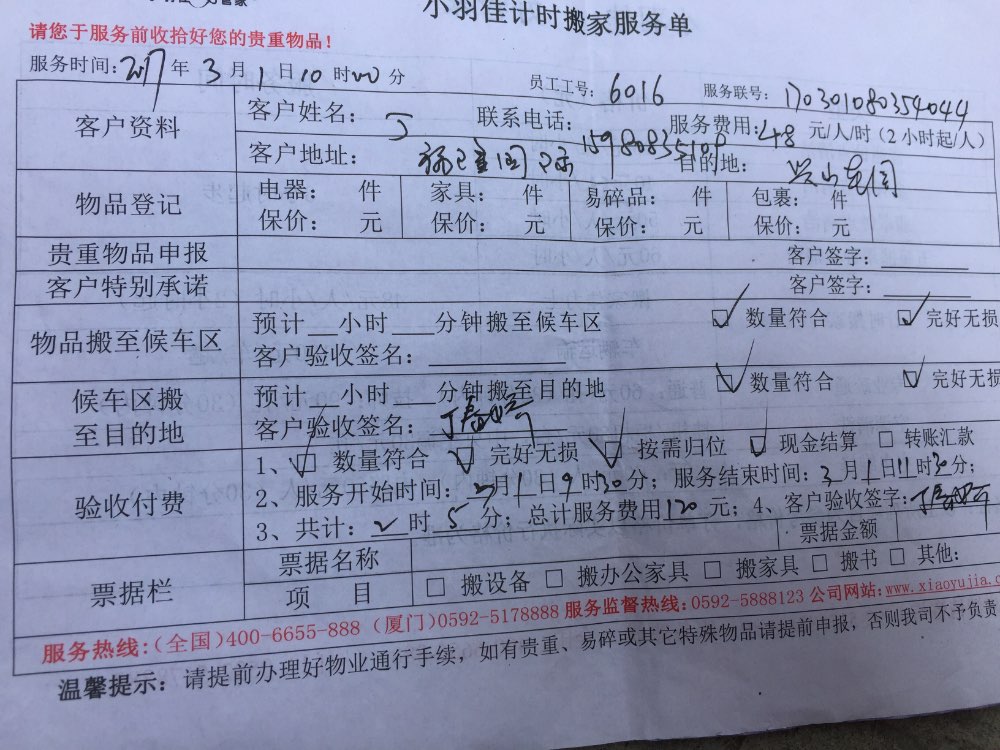 小羽佳计时搬家服务单
请您于服务前收拾好您的贵重物品！
服务时间：2017年3月1日10时00分 员工工号：6016 服务联号：170301080354044
客户资料 客户姓名：丁 联系电话：15980835108 服务费用：48元/人/时（2小时起/人）
客户地址： 目的地：
物品登记 电器： 件 家具： 件 易碎品： 件 包裹： 件
保价： 元 保价： 元 保价： 元 保价： 元
贵重物品申报 客户签字：
客户特别承诺 客户签字：
物品搬至候车区 预计 小时 分钟搬至候车区 ☑ 数量符合 ☑ 完好无损
客户验收签名：
候车区搬至目的地 预计 小时 分钟搬至目的地 ☑ 数量符合 ☑ 完好无损
客户验收签名：
验收付费 1、☑ 数量符合 ☑ 完好无损 ☑ 按需归位 ☑ 现金结算 □ 转账汇款
2、服务开始时间：3月1日9时30分；服务结束时间：3月1日11时30分；
3、共计：2时5分；总计服务费用120元；4、客户验收签字：
票据栏 票据名称 票据金额
项目 □ 搬设备 □ 搬办公家具 □ 搬家具 □ 搬书 □ 其他：
服务热线：（全国）400-6655-888（厦门）0592-5178888 服务监督热线：0592-5888123 公司网站：www.xiaoyujia.c
温馨提示：请提前办理好物业通行手续，如有贵重、易碎或其它特殊物品请提前申报，否则我司不予负责